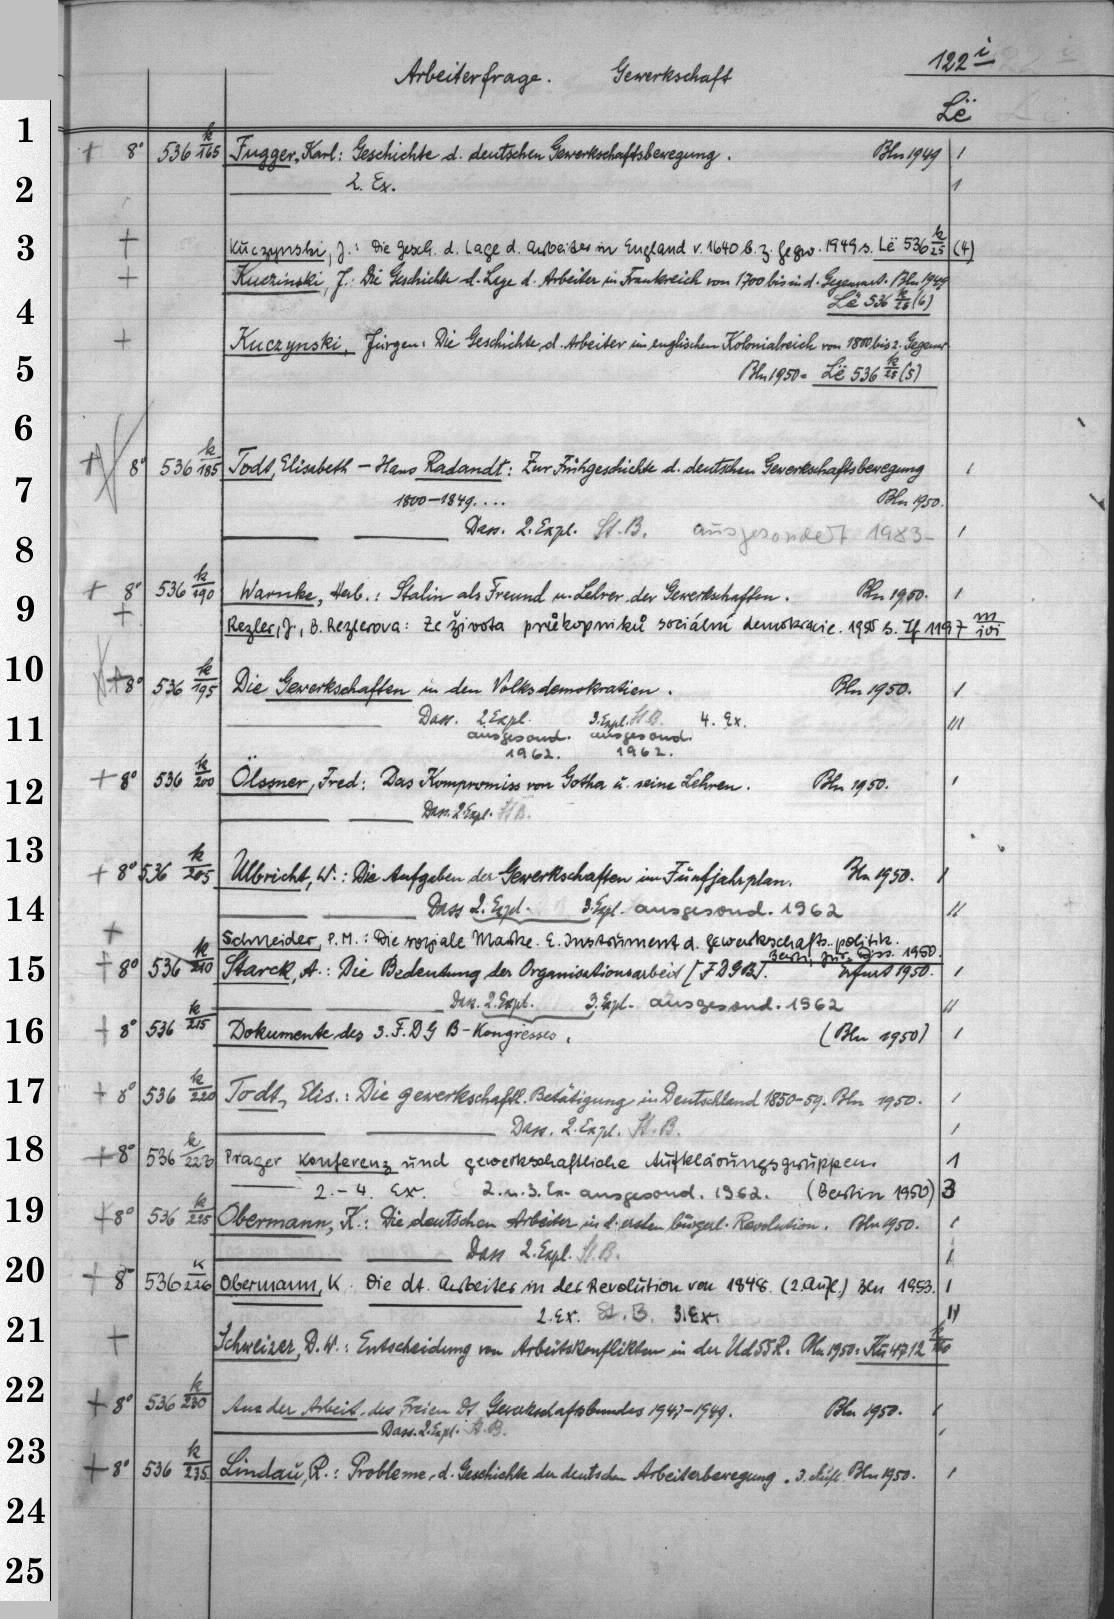 Arbeiterfrage. Gewerkschaft 122 i
Lë
1 + 8° 536 k/165 Fugger, Karl: Geschichte d. deutschen Gewerkschaftsbewegung. Bln 1949 1
2 2. Ex. 1
3 + Kuczynski, J.: Die Gesch. d. Lage d. Arbeiter in England v. 1640 b. z. Gegw. 1949 s. Lë 536 k/25 (4)
+ Kuczinski, J.: Die Geschichte d. Lage d. Arbeiter in Frankreich von 1700 bis in d. Gegenwart. Bln 1949
4 Lë 536 k/25 (6)
+ Kuczynski, Jürgen: Die Geschichte d. Arbeiter im englischen Kolonialreich von 1800 bis z. Gegenw.
5 Bln 1950 = Lë 536 k/25 (5)
6
+ 8° 536 k/185 Todt, Elisabeth – Hans Radandt: Zur Frühgeschichte d. deutschen Gewerkschaftsbewegung 1
7 1800–1849. ... Bln 1950.
Dass. 2. Expl. St. B. ausgesondert 1983 1
8
+ 8° 536 k/190 Warnke, Herb.: Stalin als Freund u. Lehrer der Gewerkschaften. Bln 1950. 1
9 + Rezler, J., B. Rezlerova: Ze života průkopniků sociální demokracie. 19 s. If 1197 m/
10 + 8° 536 k/195 Die Gewerkschaften in den Volksdemokratien. Bln 1950. 1
11 Dass. 2 Expl. 3. Expl. St B. 4. Ex. III
ausgesond. ausgesond.
1962. 1962.
12 + 8° 536 k/200 Ölssner, Fred: Das Kompromiss von Gotha u. seine Lehren. Bln 1950. 1
Dass. 2. Expl. St B.
13
+ 8° 536 k/205 Ulbricht, W.: Die Aufgaben der Gewerkschaften im Fünfjahrplan. Bln 1950. 1
14 Dass 2. Expl. 3. Expl. ausgesond. 1962 II
+ Schneider, P. M.: Die soziale Marke. E. Instrument d. gewerkschafts-politik.
Bern, jur. Diss. 1950.
15 + 8° 536 k/210 Starck, A.: Die Bedeutung der Organisationsarbeit [FDGB]. Erfurt 1950. 1
Dass. 2. Expl. 3. Expl. ausgesond. 1962 II
16 + 8° 536 k/215 Dokumente des 3. F.D G B-Kongresses. (Bln 1950) 1
17 + 8° 536 k/220 Todt, Elis.: Die gewerkschaftl. Betätigung in Deutschland 1850–59. Bln 1950. 1
Dass. 2. Expl. St. B. 1
18 + 8° 536 k/223 Prager Konferenz und gewerkschaftliche Aufklärungsgruppen. 1
2.–4. Ex. 2. u. 3. Ex. ausgesond. 1962. (Berlin 1950) 3
19 + 8° 536 k/225 Obermann, K.: Die deutschen Arbeiter in d. ersten bürgerl. Revolution. Bln 1950. 1
Dass 2. Expl. St. B. 1
20 + 8° 536 K/226 Obermann, K. Die dt. Arbeiter in der Revolution von 1848. (2. Aufl.) Bln 1953. 1
2. Ex. St. B. 3. Ex. II
21 + Schweizer, D. W.: Entscheidung von Arbeitskonflikten in der UdSSR. Bln 1950: 4712
22 + 8° 536 k/230 Aus der Arbeit des Freien Dt. Gewerkschaftsbundes 1947–1949. Bln 1950. 1
Dass. 2. Expl. St. B. 1
23 + 8° 536 k/235 Lindau, R.: Probleme d. Geschichte der deutschen Arbeiterbewegung. 3. Aufl. Bln 1950. 1
24
25